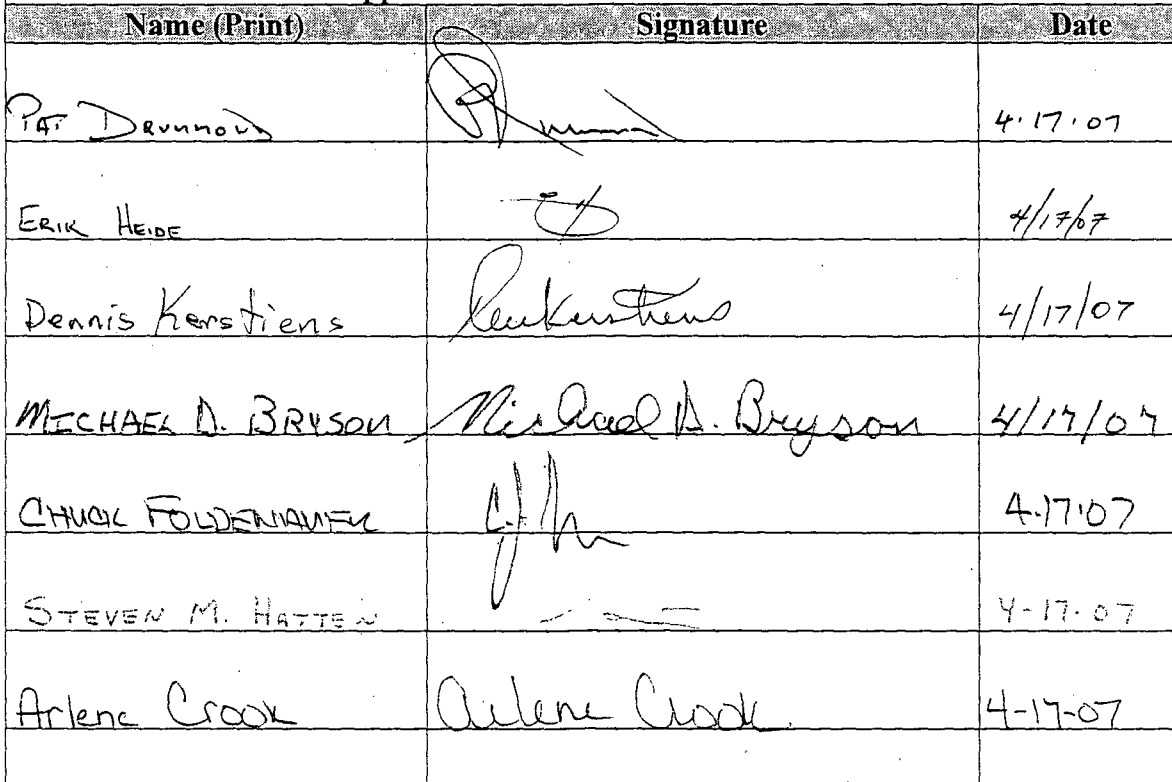 Name (Print) Signature Date
PAT DRUMMOND 4.17.07
ERIK HEIDE 4/17/07
Dennis Kerstiens Kerstiens 4/17/07
MICHAEL D. BRYSON Michael D. Bryson 4/17/07
CHUCK FOLDENAUER 4.17.07
STEVEN M. HATTEN 4-17-07
Arlene Crook Arlene Crook 4-17-07